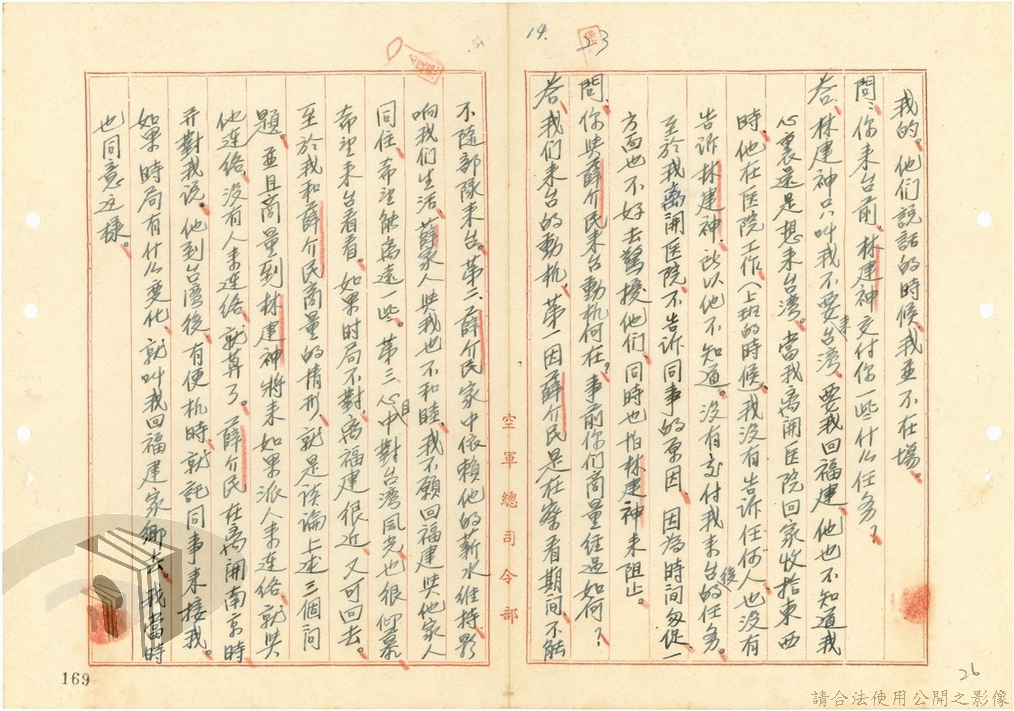 14.
23
我的。他们説話的時候我並不在場。
問：你来台前，林建神交付你一些什么任务？
答：林建神只叫我不要来台湾，要我回福建，他也不知道我
心裏还是想来台湾。當我离開医院回家收拾東西
時，他在医院工作，(上班的時候)我没有告诉任何人，也没有
告訴林建神，所以他不知道。没有交付我来台後的任务。
至於我离開医院不告訴同事的原因，因為時间匆促，一
方面也不好去驚擾他们，同時也怕林建神来阻止。
問：你與薛介民来台動机何在？事前你们商量经過如何？
答：我们来台的動机。第一因薛介民是在察看期间，不能
不随部隊来台。第二薛介民家中依賴他的薪水维持，影
响我们生活，薛家人與我也不和睦，我不願回福建與他家人
同住，希望能离遠一些。第三心目中對台湾風光也很仰慕
希望来台看看。如果时局不對，离福建很近，又可回去。
至於我和薛介民商量的情形，就是谈論上述三個问
題。並且商量到林建神将来如果派人来連络，就與
他連络，没有人来連络，就算了。薛介民在离開南京時
并對我说，他到台湾後，有便机時，就託同事来接我。
如果時局有什么变化，就叫我回福建家鄉去，我當時
也同意这樣。
空軍總司令部
169
26
請合法使用公開之影像